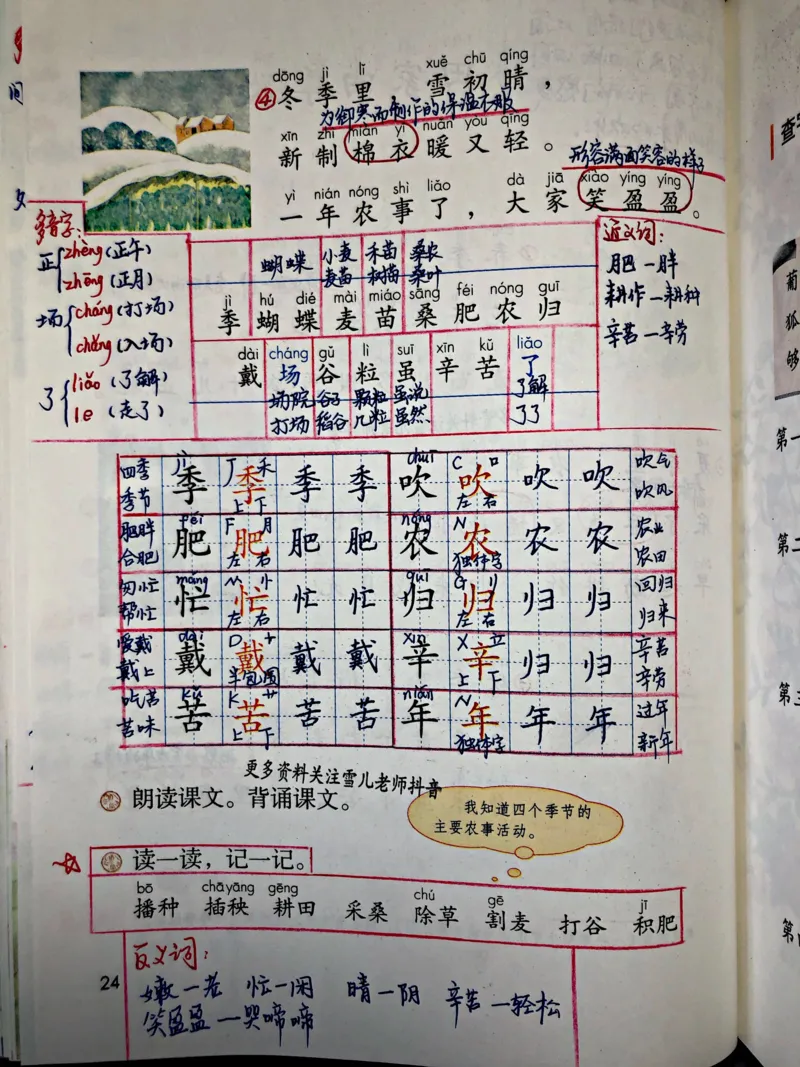 xuě chū qíng
dōng jì lǐ
④冬季里 雪初晴，
为御寒而制作的保温衣服
xīn zhì mián yī nuǎn yòu qīng
新制棉衣暖又轻。
形容满面笑容的样子
yì nián nóng shì liǎo dà jiā xiào yíng yíng
一年农事了，大家笑盈盈。
多音字：
正 zhèng（正午）
zhēng（正月）
场 cháng（打场）
chǎng（入场）
了 liǎo（了解）
le（走了）
近义词：
肥—胖
耕作—耕种
辛苦—辛劳
蝴蝶 小麦 禾苗 桑农
麦苗 树苗 桑叶
jì hú dié mài miáo sāng féi nóng guī
季 蝴 蝶 麦 苗 桑 肥 农 归
dài cháng gǔ lì suī xīn kǔ liǎo
戴 场 谷 粒 虽 辛 苦 了
场院 谷子 颗粒 虽说 了解
打场 稻谷 几粒 虽然 了了
四季 jì J 禾 chuī C 口 吹气
季节 季 季 季 季 吹 吹 吹 吹 吹风
上下 左右
肥胖 féi F 月 nóng N 农业
合肥 肥 肥 肥 肥 农 农 农 农 农田
左右 独体字
匆忙 máng M 忄 guī G 刂 回归
帮忙 忙 忙 忙 忙 归 归 归 归 归来
左右 左右
爱戴 dài D 十 xīn X 立 辛苦
戴上 戴 戴 戴 戴 辛 辛 归 归 辛劳
半包围 上下
吃苦 kǔ K 艹 nián N 过年
苦味 苦 苦 苦 苦 年 年 年 年 新年
上下 独体字
更多资料关注雪儿老师抖音
朗读课文。背诵课文。
我知道四个季节的
主要农事活动。
读一读，记一记。
bō chā yāng gēng chú gē jī
播种 插秧 耕田 采桑 除草 割麦 打谷 积肥
反义词：
24
嫩—老 忙—闲 晴—阴 辛苦—轻松
笑盈盈—哭啼啼